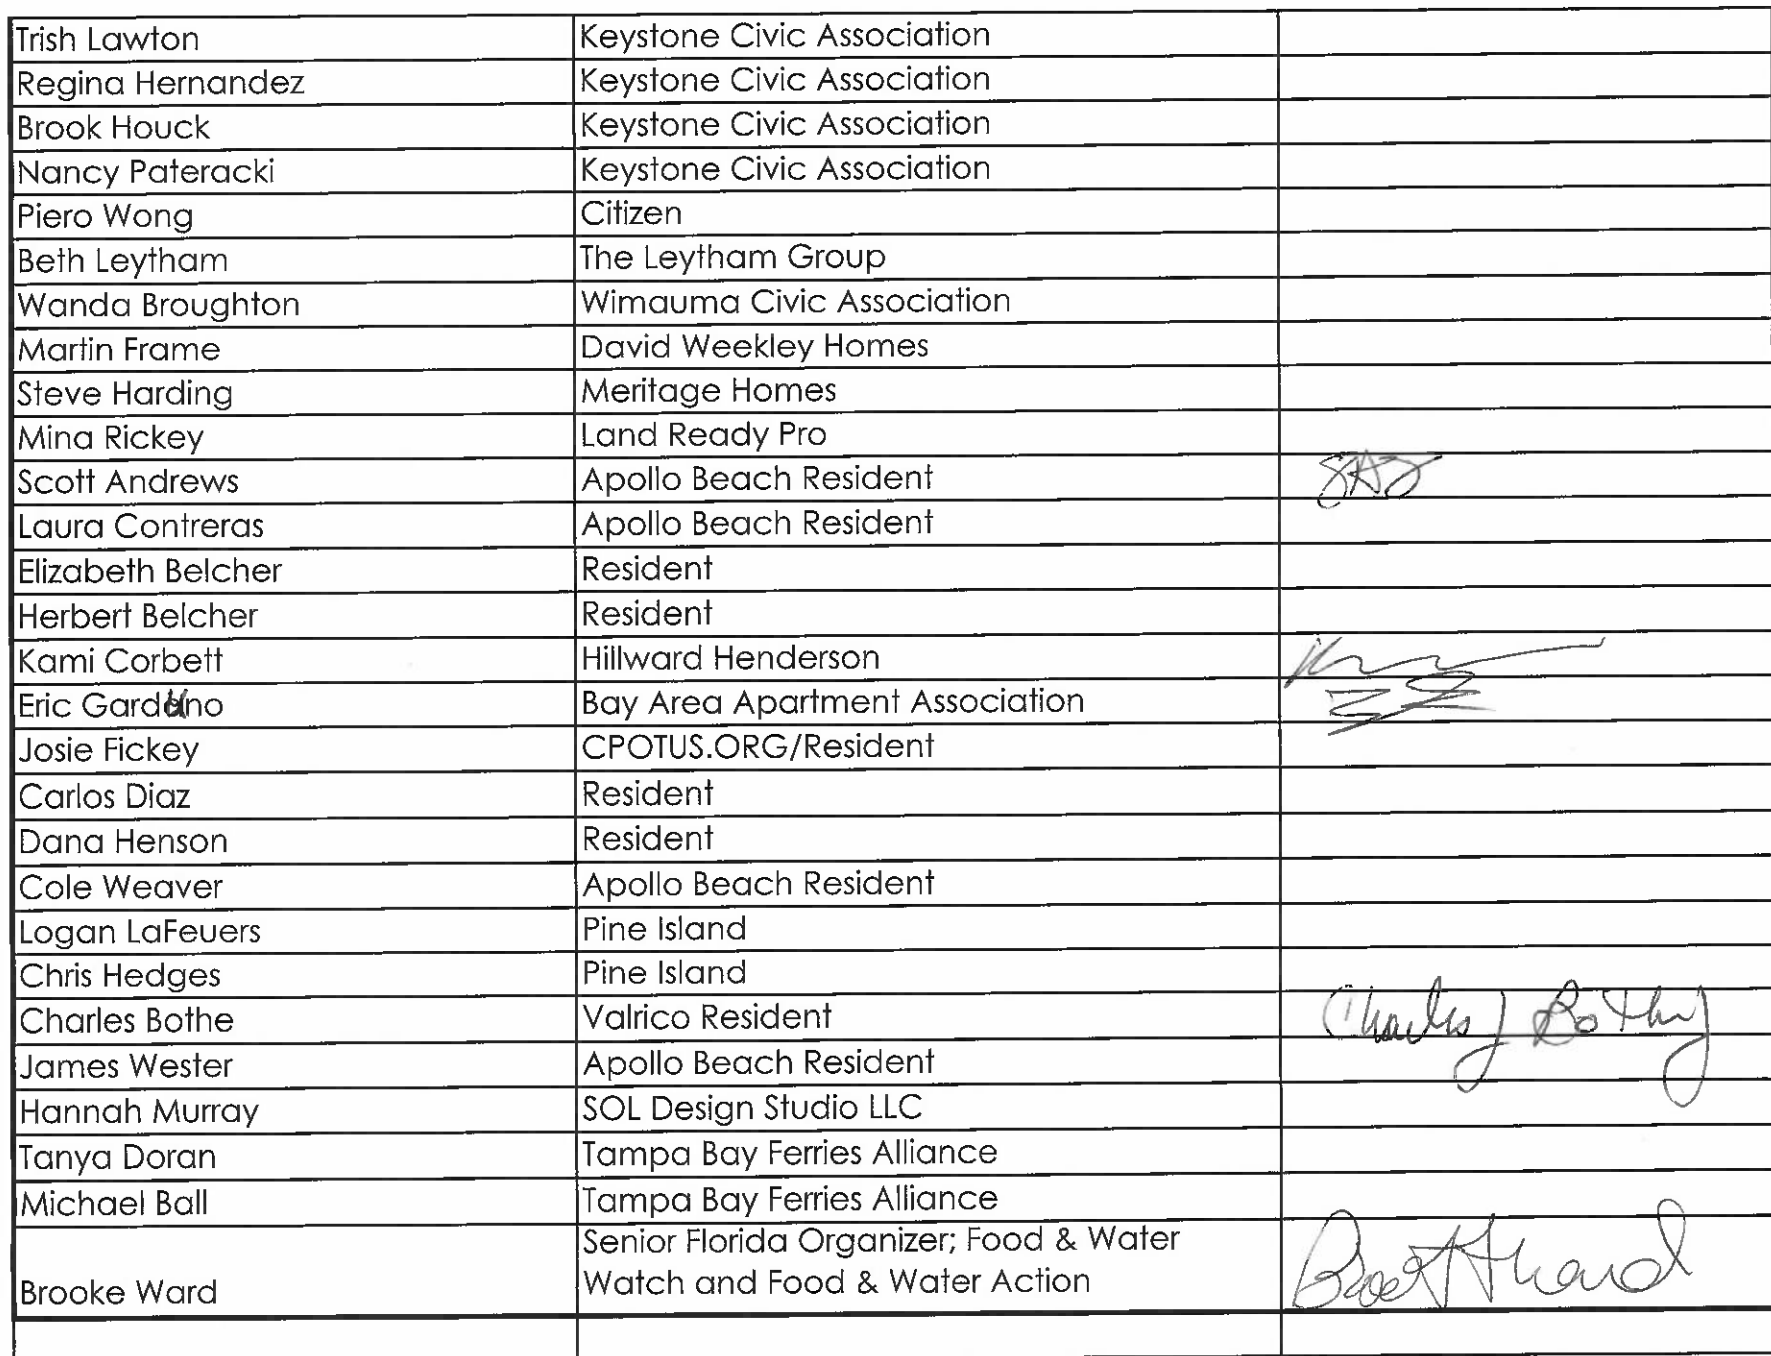 Trish Lawton Keystone Civic Association
Regina Hernandez Keystone Civic Association
Brook Houck Keystone Civic Association
Nancy Pateracki Keystone Civic Association
Piero Wong Citizen
Beth Leytham The Leytham Group
Wanda Broughton Wimauma Civic Association
Martin Frame David Weekley Homes
Steve Harding Meritage Homes
Mina Rickey Land Ready Pro
Scott Andrews Apollo Beach Resident
Laura Contreras Apollo Beach Resident
Elizabeth Belcher Resident
Herbert Belcher Resident
Kami Corbett Hillward Henderson
Eric Garduno Bay Area Apartment Association
Josie Fickey CPOTUS.ORG/Resident
Carlos Diaz Resident
Dana Henson Resident
Cole Weaver Apollo Beach Resident
Logan LaFeuers Pine Island
Chris Hedges Pine Island
Charles Bothe Valrico Resident Charles J
James Wester Apollo Beach Resident
Hannah Murray SOL Design Studio LLC
Tanya Doran Tampa Bay Ferries Alliance
Michael Ball Tampa Bay Ferries Alliance
Senior Florida Organizer; Food & Water
Brooke Ward Watch and Food & Water Action